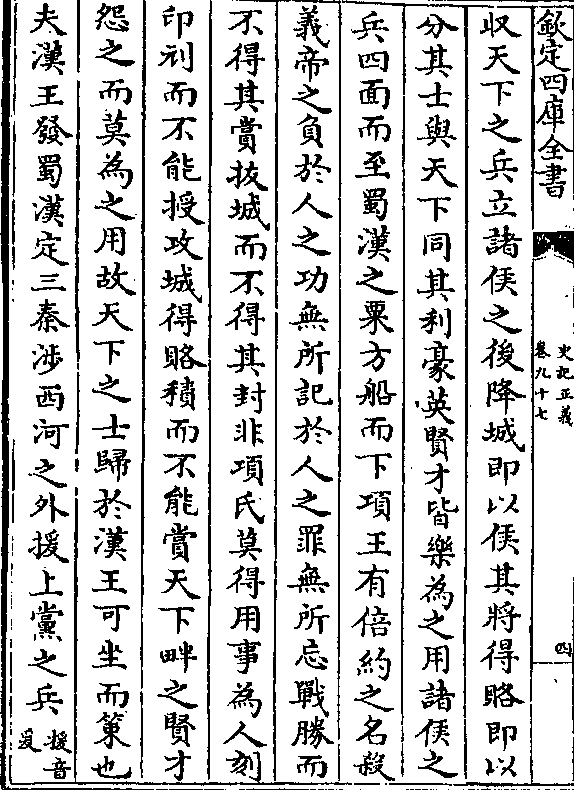 欽定四庫全書
史記正義
卷九十七
四
収天下之兵立諸侯之後降城即以侯其將得賂即以
分其士與天下同其利豪英賢才皆樂為之用諸侯之
兵四面而至蜀漢之粟方船而下項王有倍約之名殺
義帝之負於人之功無所記於人之罪無所忘戰勝而
不得其賞拔城而不得其封非項氏莫得用事為人刻
印刓而不能授攻城得賂積而不能賞天下畔之賢才
怨之而莫為之用故天下之士歸於漢王可坐而策也
夫漢王發蜀漢定三秦涉西河之外援上黨之兵援音
爰